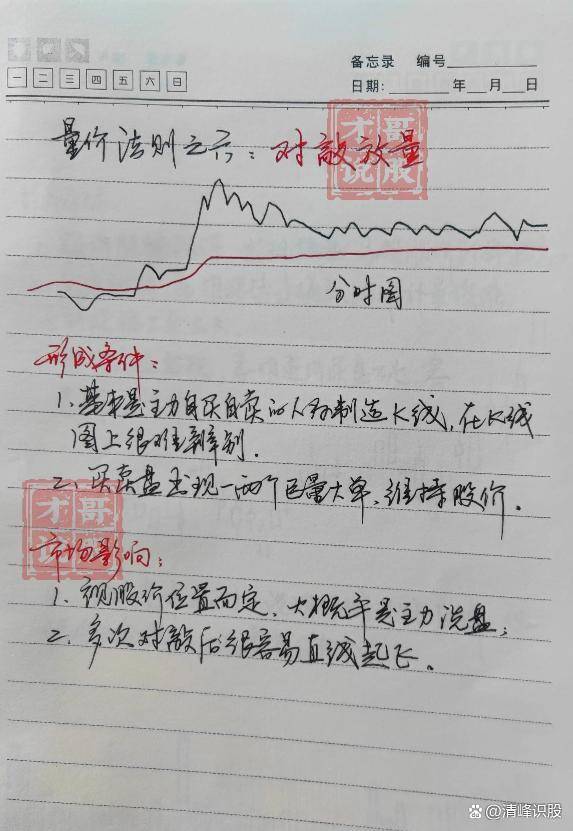 备忘录 编号
一 二 三 四 五 六 日
日期: 年 月 日
量价法则之六：对敲放量
才哥说股
分时图
形成条件：
1、基本是主力自买自卖的人为制造K线，在K线
图上很难辨别.
2、买卖盘出现一两个巨量大单、维持股价.
才哥说股
市场影响：
1、视股价位置而定，大概率是主力洗盘；
2、多次对敲后很容易直线起飞.
清峰识股